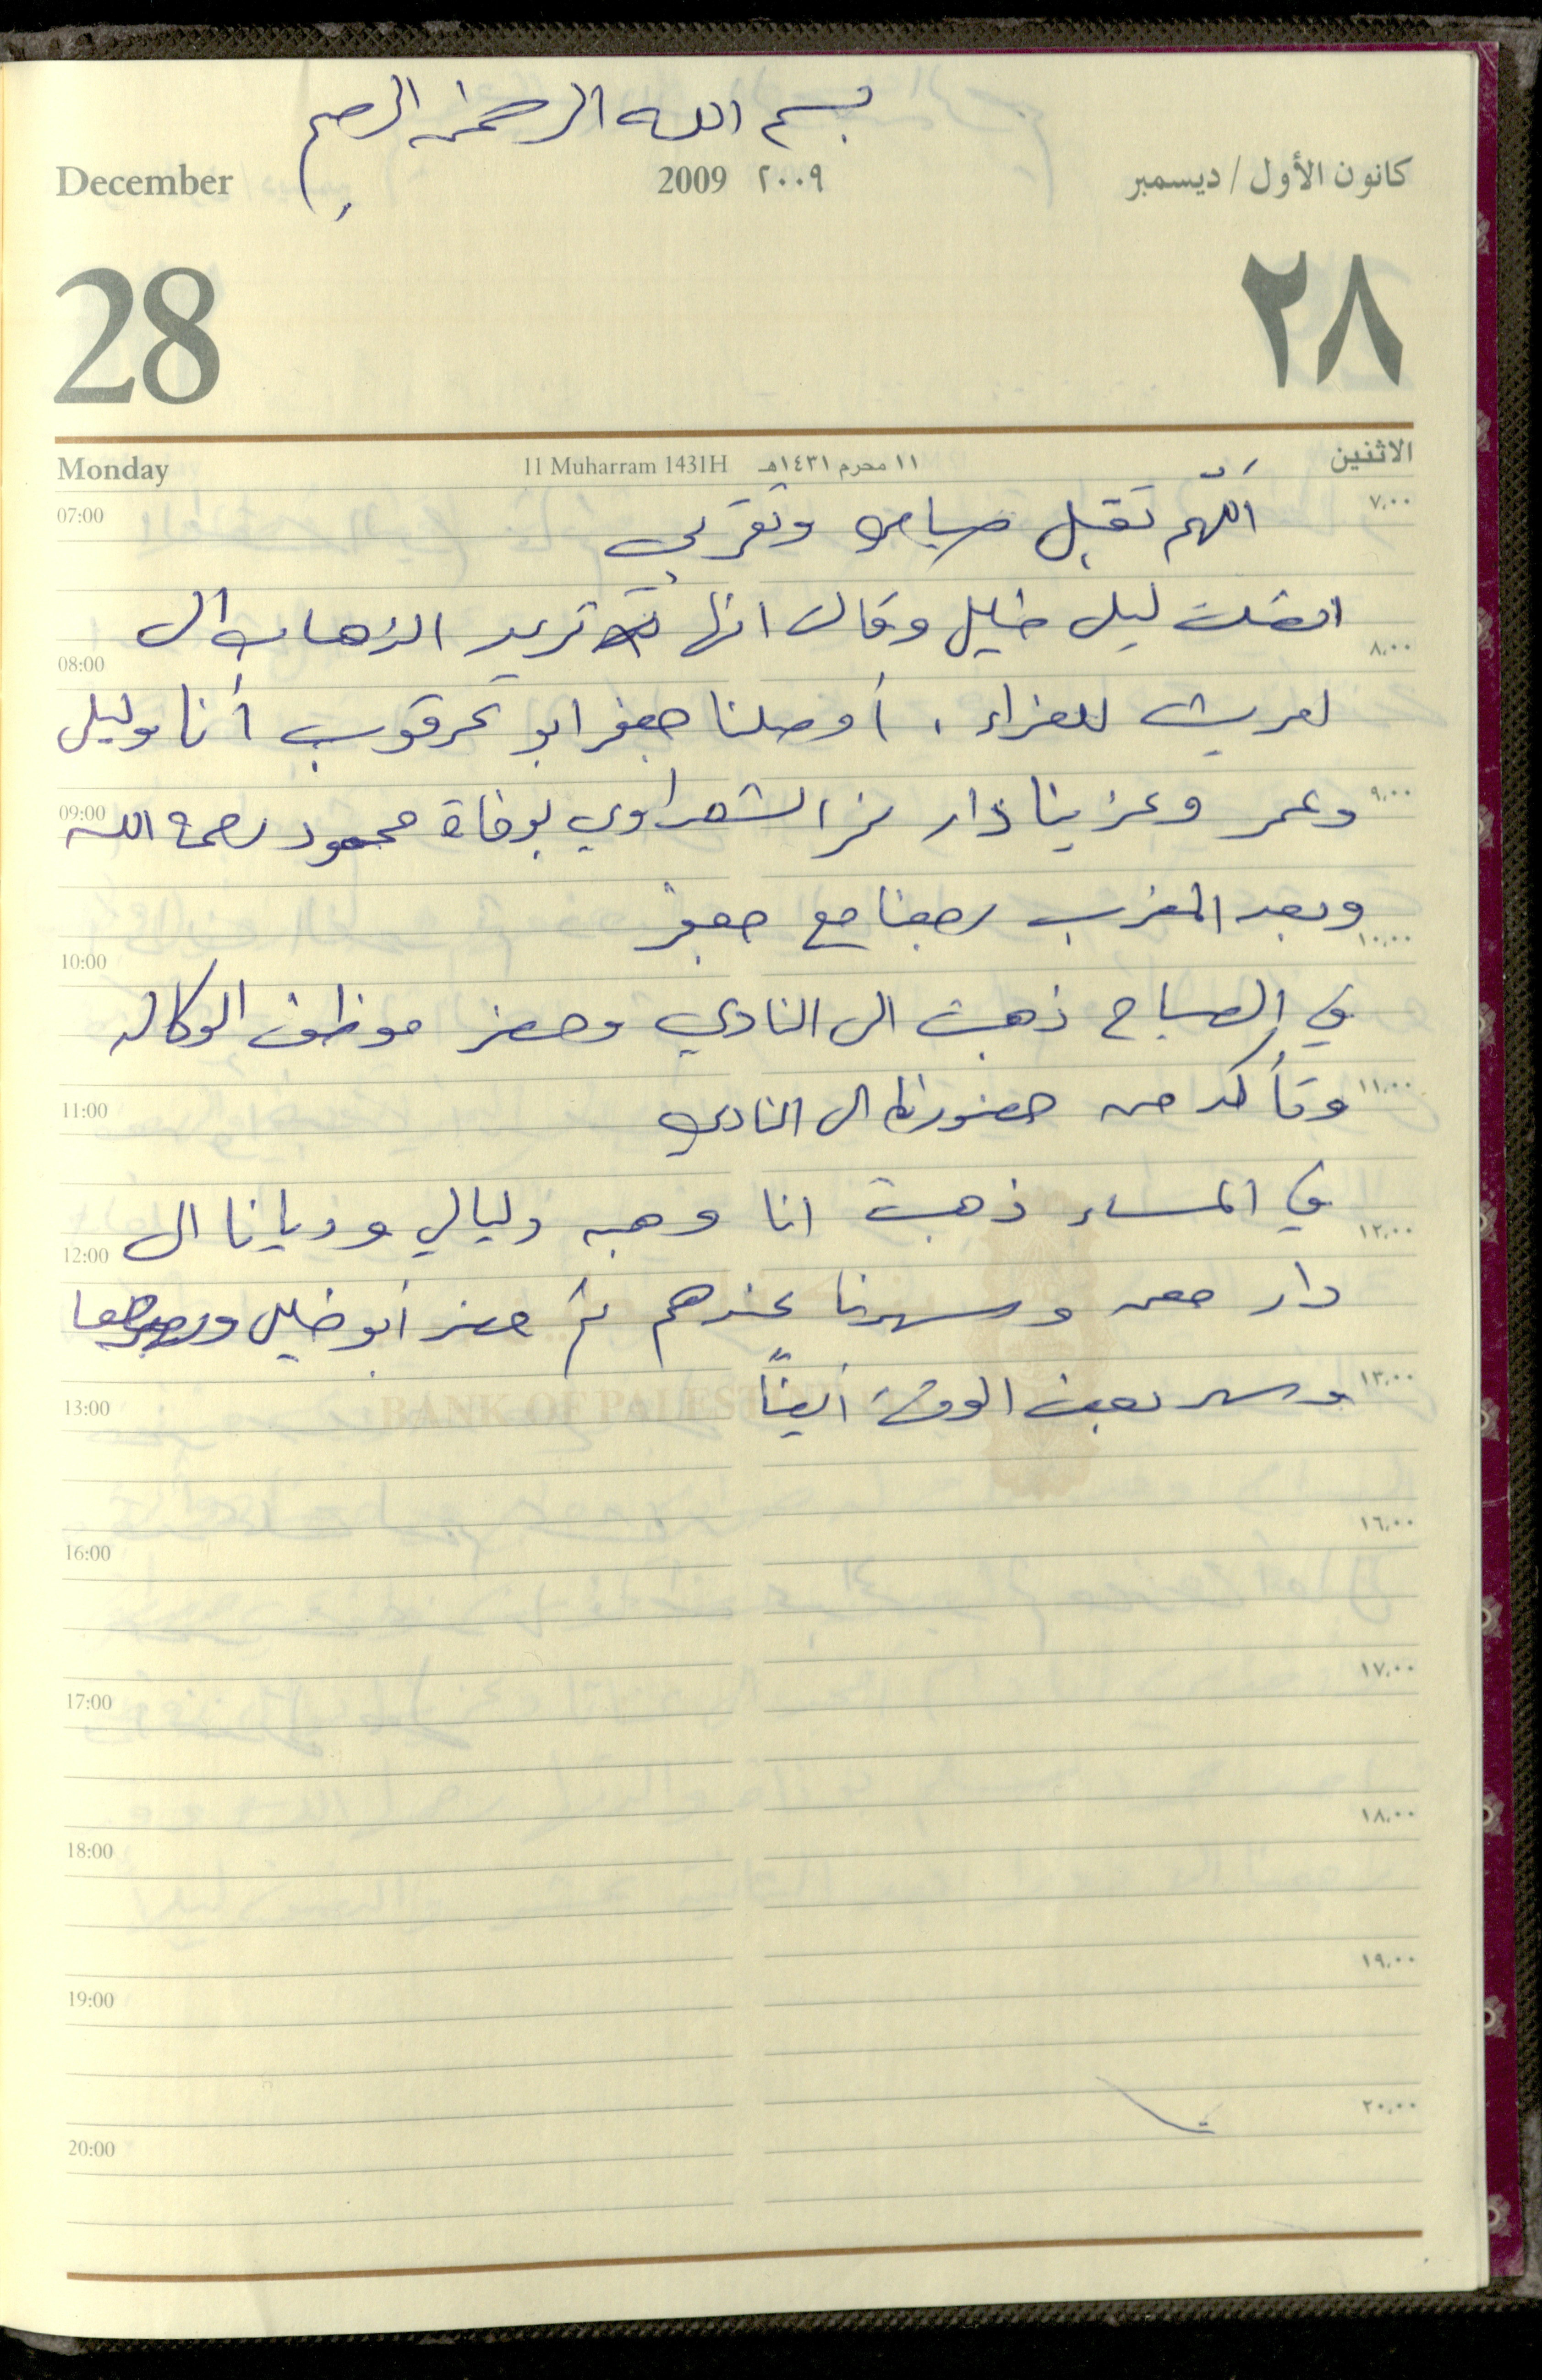 بسم الله الرحمن الرحيم
December 2009 ٢٠٠٩ كانون الأول / ديسمبر
28 ٢٨
Monday 11 Muharram 1431H ١١ محرم ١٤٣١هـ الاثنين
07:00 اللّهم تقبل صيامي وتقربي ٧,٠٠
اتصلت ليلى خليل وقالت انها تريد الذهاب الى
08:00 ٨,٠٠
لعزاء . أوصلنا جعفر ابو عرقوب أنا وليلى
09:00 وعمر وعزينا دار الشعراوي بوفاة محمود رحمه الله ٩,٠٠
وبعد المغرب رجعنا مع جعفر
10:00 ١٠,٠٠
في الصباح ذهبت الى النادي وحضر موظف الوكاله
11:00 وتأكد من حضورنا الى النادي ١١,٠٠
في المساء ذهبت انا وهبه وليالي وديانا الى
12:00 ١٢,٠٠
دار معن وسهرنا عندهم ثم حضر أبو خليل
13:00 وسهر بعض الوقت أيضاً ١٣,٠٠
BANK OF PALESTINE
16:00 ١٦,٠٠
17:00 ١٧,٠٠
18:00 ١٨,٠٠
19:00 ١٩,٠٠
20:00 ٢٠,٠٠